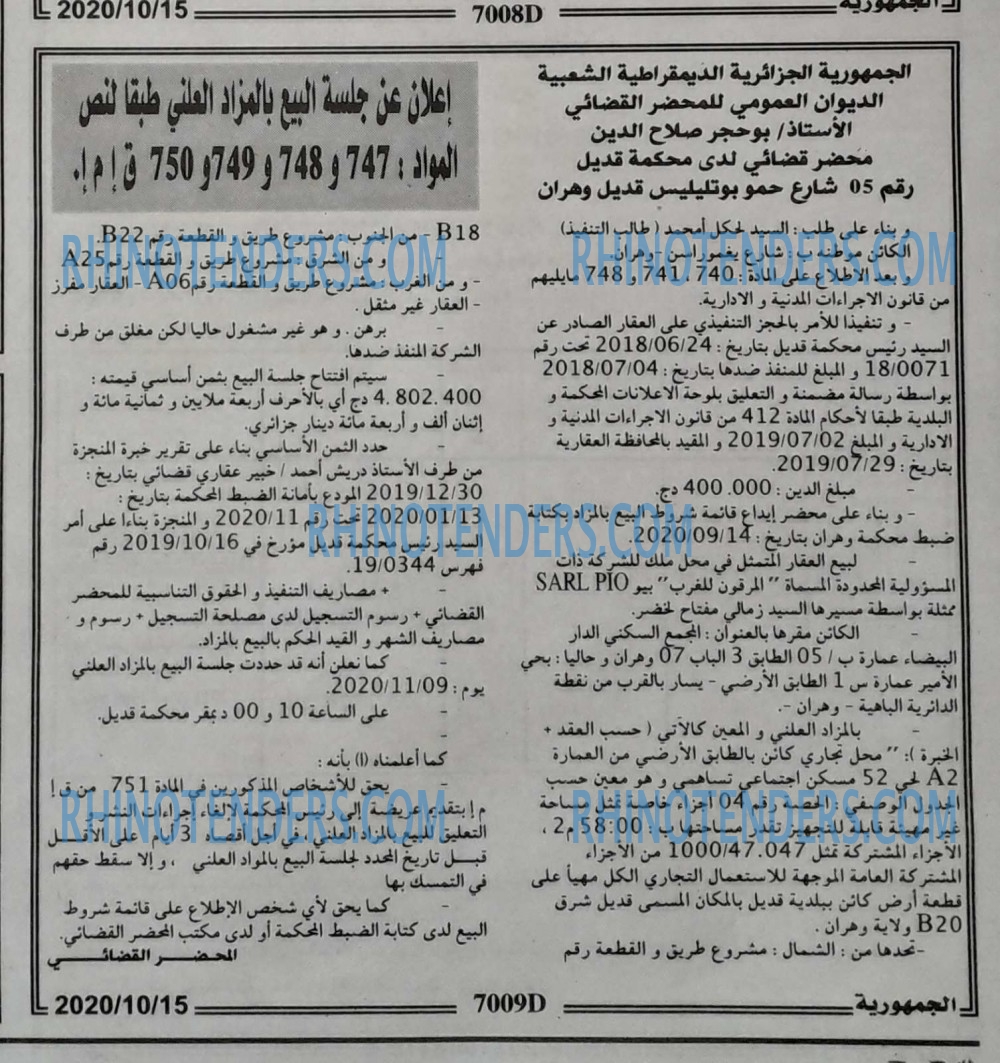 2020/10/15
7008D
الجمهورية
الجمهورية الجزائرية الديمقراطية الشعبية
الديوان العمومي للمحضر القضائي
الأستاذ/ بوحجر صلاح الدين
محضر قضائي لدى محكمة قديل
رقم 05 شارع حمو بوتليليس قديل وهران
و بناء على طلب : السيد لحكل أمحمد ( طالب التنفيذ)
الكائن موطنه ب : شارع يغموراسن - وهران
و بعد الاطلاع على المادة : 740 ، 741 ، و 748 مايليهم
من قانون الاجراءات المدنية و الادارية.
- و تنفيذا للأمر بالحجز التنفيذي على العقار الصادر عن
السيد رئيس محكمة قديل بتاريخ : 2018/06/24 تحت رقم
18/0071 و المبلغ للمنفذ ضدها بتاريخ : 2018/07/04
بواسطة رسالة مضمنة و التعليق بلوحة الاعلانات المحكمة و
البلدية طبقا لأحكام المادة 412 من قانون الاجراءات المدنية و
الادارية و المبلغ 2019/07/02 و المقيد بالمحافظة العقارية
بتاريخ : 2019/07/29.
- مبلغ الدين : 400.000 دج.
- و بناء على محضر إيداع قائمة شروط البيع بالمزاد بكتابة
ضبط محكمة وهران بتاريخ : 2020/09/14.
- لبيع العقار المتمثل في محل ملك للشركة ذات
المسؤولية المحدودة المسماة " المرقون للغرب" بيو SARL PIO
ممثلة بواسطة مسيرها السيد زمالي مفتاح لخضر.
- الكائن مقرها بالعنوان : المجمع السكني الدار
البيضاء عمارة ب / 05 الطابق 3 الباب 07 وهران و حاليا : بحي
الأمير عمارة س 1 الطابق الأرضي - يسار بالقرب من نقطة
الدائرية الباهية - وهران -.
- بالمزاد العلني و المعين كالآتي ( حسب العقد +
الخبرة ): " محل تجاري كائن بالطابق الأرضي من العمارة
A2 لحي 52 مسكن اجتماعي تساهمي و هو معين حسب
الجدول الوصفي : الحصة رقم 04 أجزاء خاصة تمثل مساحة
غير مهيئة قابلة للتجهيز تقدر مساحتها ب : 58:00 م2 ،
الأجزاء المشتركة تمثل 1000/47.047 من الأجزاء
المشتركة العامة الموجهة للاستعمال التجاري الكل مهيأ على
قطعة أرض كائن ببلدية قديل بالمكان المسمى قديل شرق
B20 ولاية وهران .
-تحدها من : الشمال : مشروع طريق و القطعة رقم
إعلان عن جلسة البيع بالمزاد العلني طبقا لنص
المواد : 747 و 748 و 749و 750 ق إ م إ.
B18 - من الجنوب : مشروع طريق و القطعة رقم B22.
- و من الشرق : مشروع طريق و القطعة رقم A25
- و من الغرب : مشروع طريق و القطعة رقم A06 - العقار مفرز
- العقار غير مثقل .
- برهن . و هو غير مشغول حاليا لكن مغلق من طرف
الشركة المنفذ ضدها.
- سيتم افتتاح جلسة البيع بثمن أساسي قيمته :
4.802.400 دج أي بالأحرف أربعة ملايين و ثمانية مائة و
إثنان ألف و أربعة مائة دينار جزائري.
- حدد الثمن الأساسي بناء على تقرير خبرة المنجزة
من طرف الأستاذ دريش أحمد / خبير عقاري قضائي بتاريخ :
2019/12/30 المودع بأمانة الضبط المحكمة بتاريخ :
2020/01/13 تحت رقم 2020/11 و المنجزة بناءا على أمر
السيد رئيس محكمة قديل مؤرخ في 2019/10/16 رقم
فهرس 19/0344.
- + مصاريف التنفيذ و الحقوق التناسبية للمحضر
القضائي + رسوم التسجيل لدى مصلحة التسجيل + رسوم و
مصاريف الشهر و القيد الحكم بالبيع بالمزاد.
- كما نعلن أنه قد حددت جلسة البيع بالمزاد العلني
يوم : 2020/11/09.
- على الساعة 10 و 00 د بمقر محكمة قديل.
-
كما أعلمناه (ا) بأنه :
- يحق للأشخاص المذكورين في المادة 751 من ق إ
م إ بتقديم عريضة إلى رئيس المحكمة لالغاء إجراءات النشر و
التعليق للبيع بالمزاد العلني، في أجل أقصاه 3 أيام على الأقل
قبل تاريخ المحدد لجلسة البيع بالمواد العلني ، و إلا سقط حقهم
في التمسك بها
- كما يحق لأي شخص الإطلاع على قائمة شروط
البيع لدى كتابة الضبط المحكمة أو لدى مكتب المحضر القضائي.
المحضر القضائي
2020/10/15
7009D
الجمهورية
RHINOTENDERS.COM
RHINOTENDERS.COM
RHINOTENDERS.COM
RHINOTENDERS.COM
RHINOTENDERS.COM